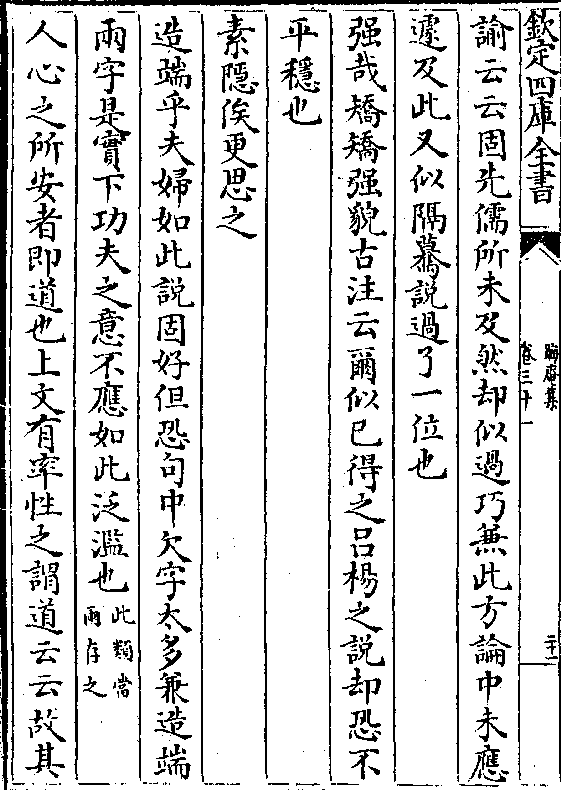 欽定四庫全書
晦庵集
卷三十一
二十一
諭云云固先儒所未及然却似過巧兼此方論中未應
遽及此又似隔驀說過了一位也
强哉矯矯强貌古注云爾似已得之吕楊之說却恐不
平穩也
素隱俟更思之
造端乎夫婦如此說固好但恐句中欠字太多兼造端
兩字是實下功夫之意不應如此泛濫也此類當
兩存之
人心之所安者即道也上文有率性之謂道云云故其